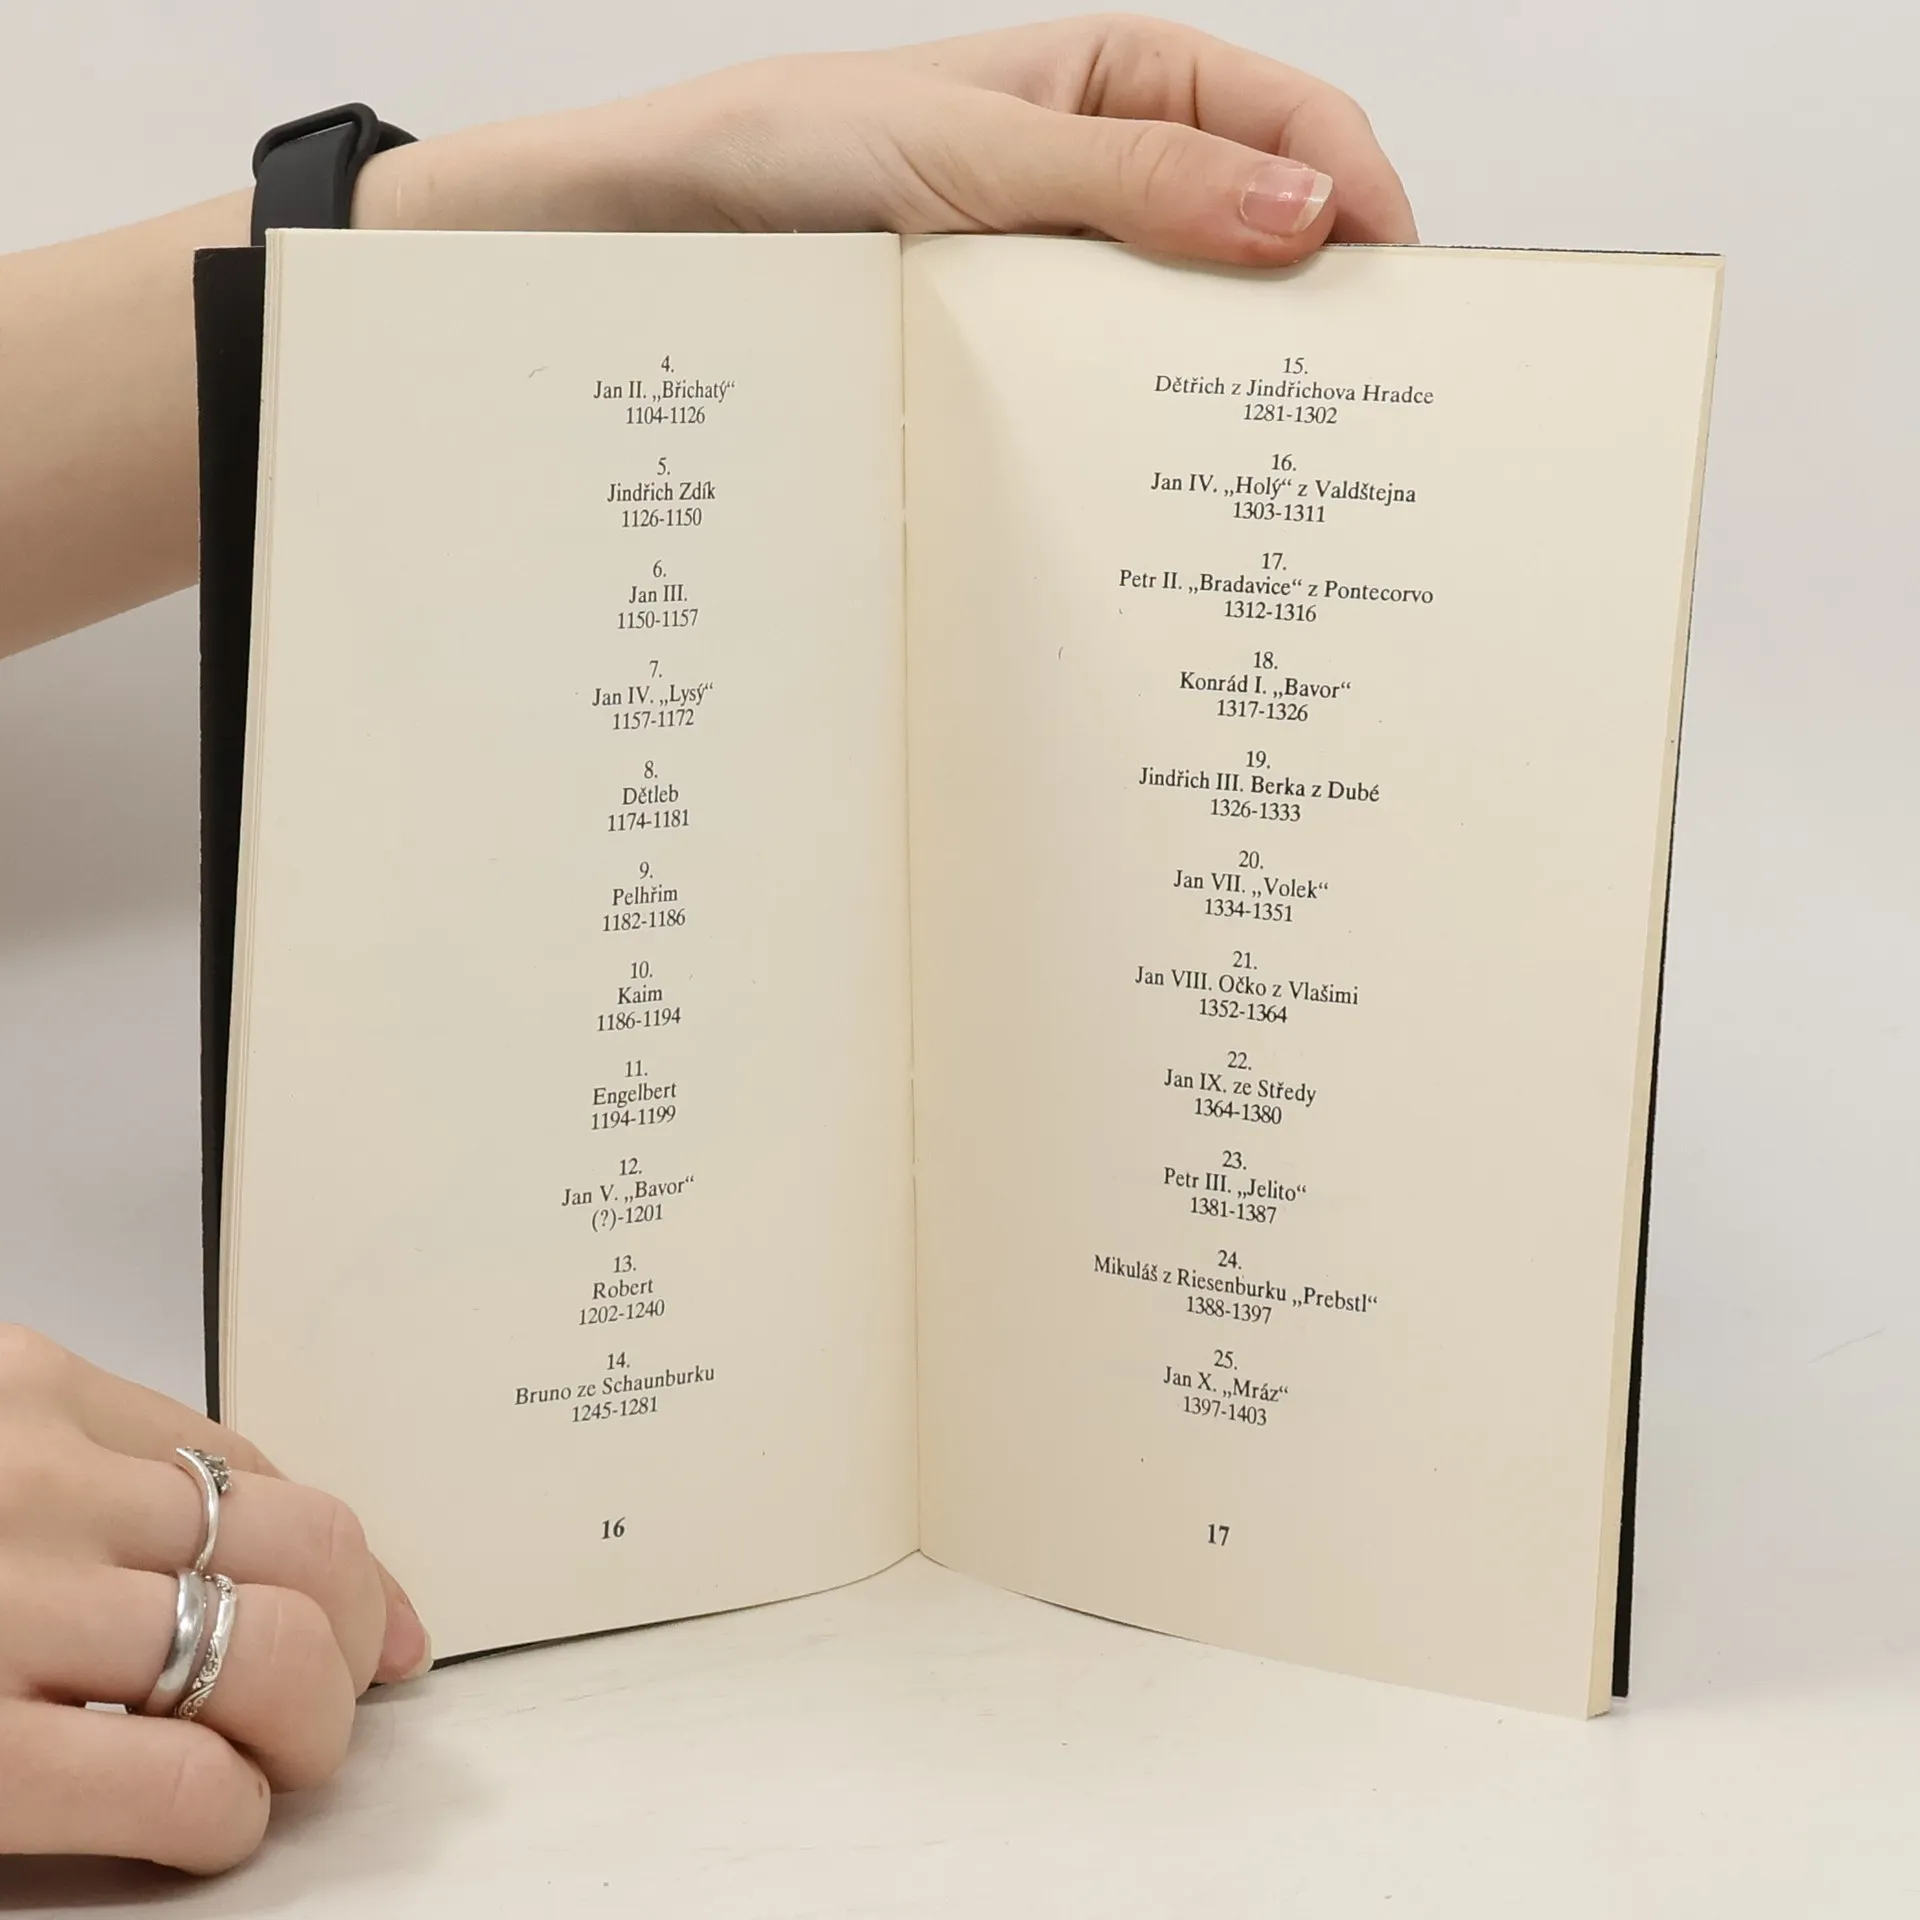 4.
Jan II. „Břichatý“
1104-1126
5.
Jindřich Zdík
1126-1150
6.
Jan III.
1150-1157
7.
Jan IV. „Lysý“
1157-1172
8.
Dětleb
1174-1181
9.
Pelhřim
1182-1186
10.
Kaim
1186-1194
11.
Engelbert
1194-1199
12.
Jan V. „Bavor“
(?)-1201
13.
Robert
1202-1240
14.
Bruno ze Schaunburku
1245-1281
16
15.
Dětřich z Jindřichova Hradce
1281-1302
16.
Jan IV. „Holý“ z Valdštejna
1303-1311
17.
Petr II. „Bradavice“ z Pontecorvo
1312-1316
18.
Konrád I. „Bavor“
1317-1326
19.
Jindřich III. Berka z Dubé
1326-1333
20.
Jan VII. „Volek“
1334-1351
21.
Jan VIII. Očko z Vlašimi
1352-1364
22.
Jan IX. ze Středy
1364-1380
23.
Petr III. „Jelito“
1381-1387
24.
Mikuláš z Riesenburku „Prebstl“
1388-1397
25.
Jan X. „Mráz“
1397-1403
17